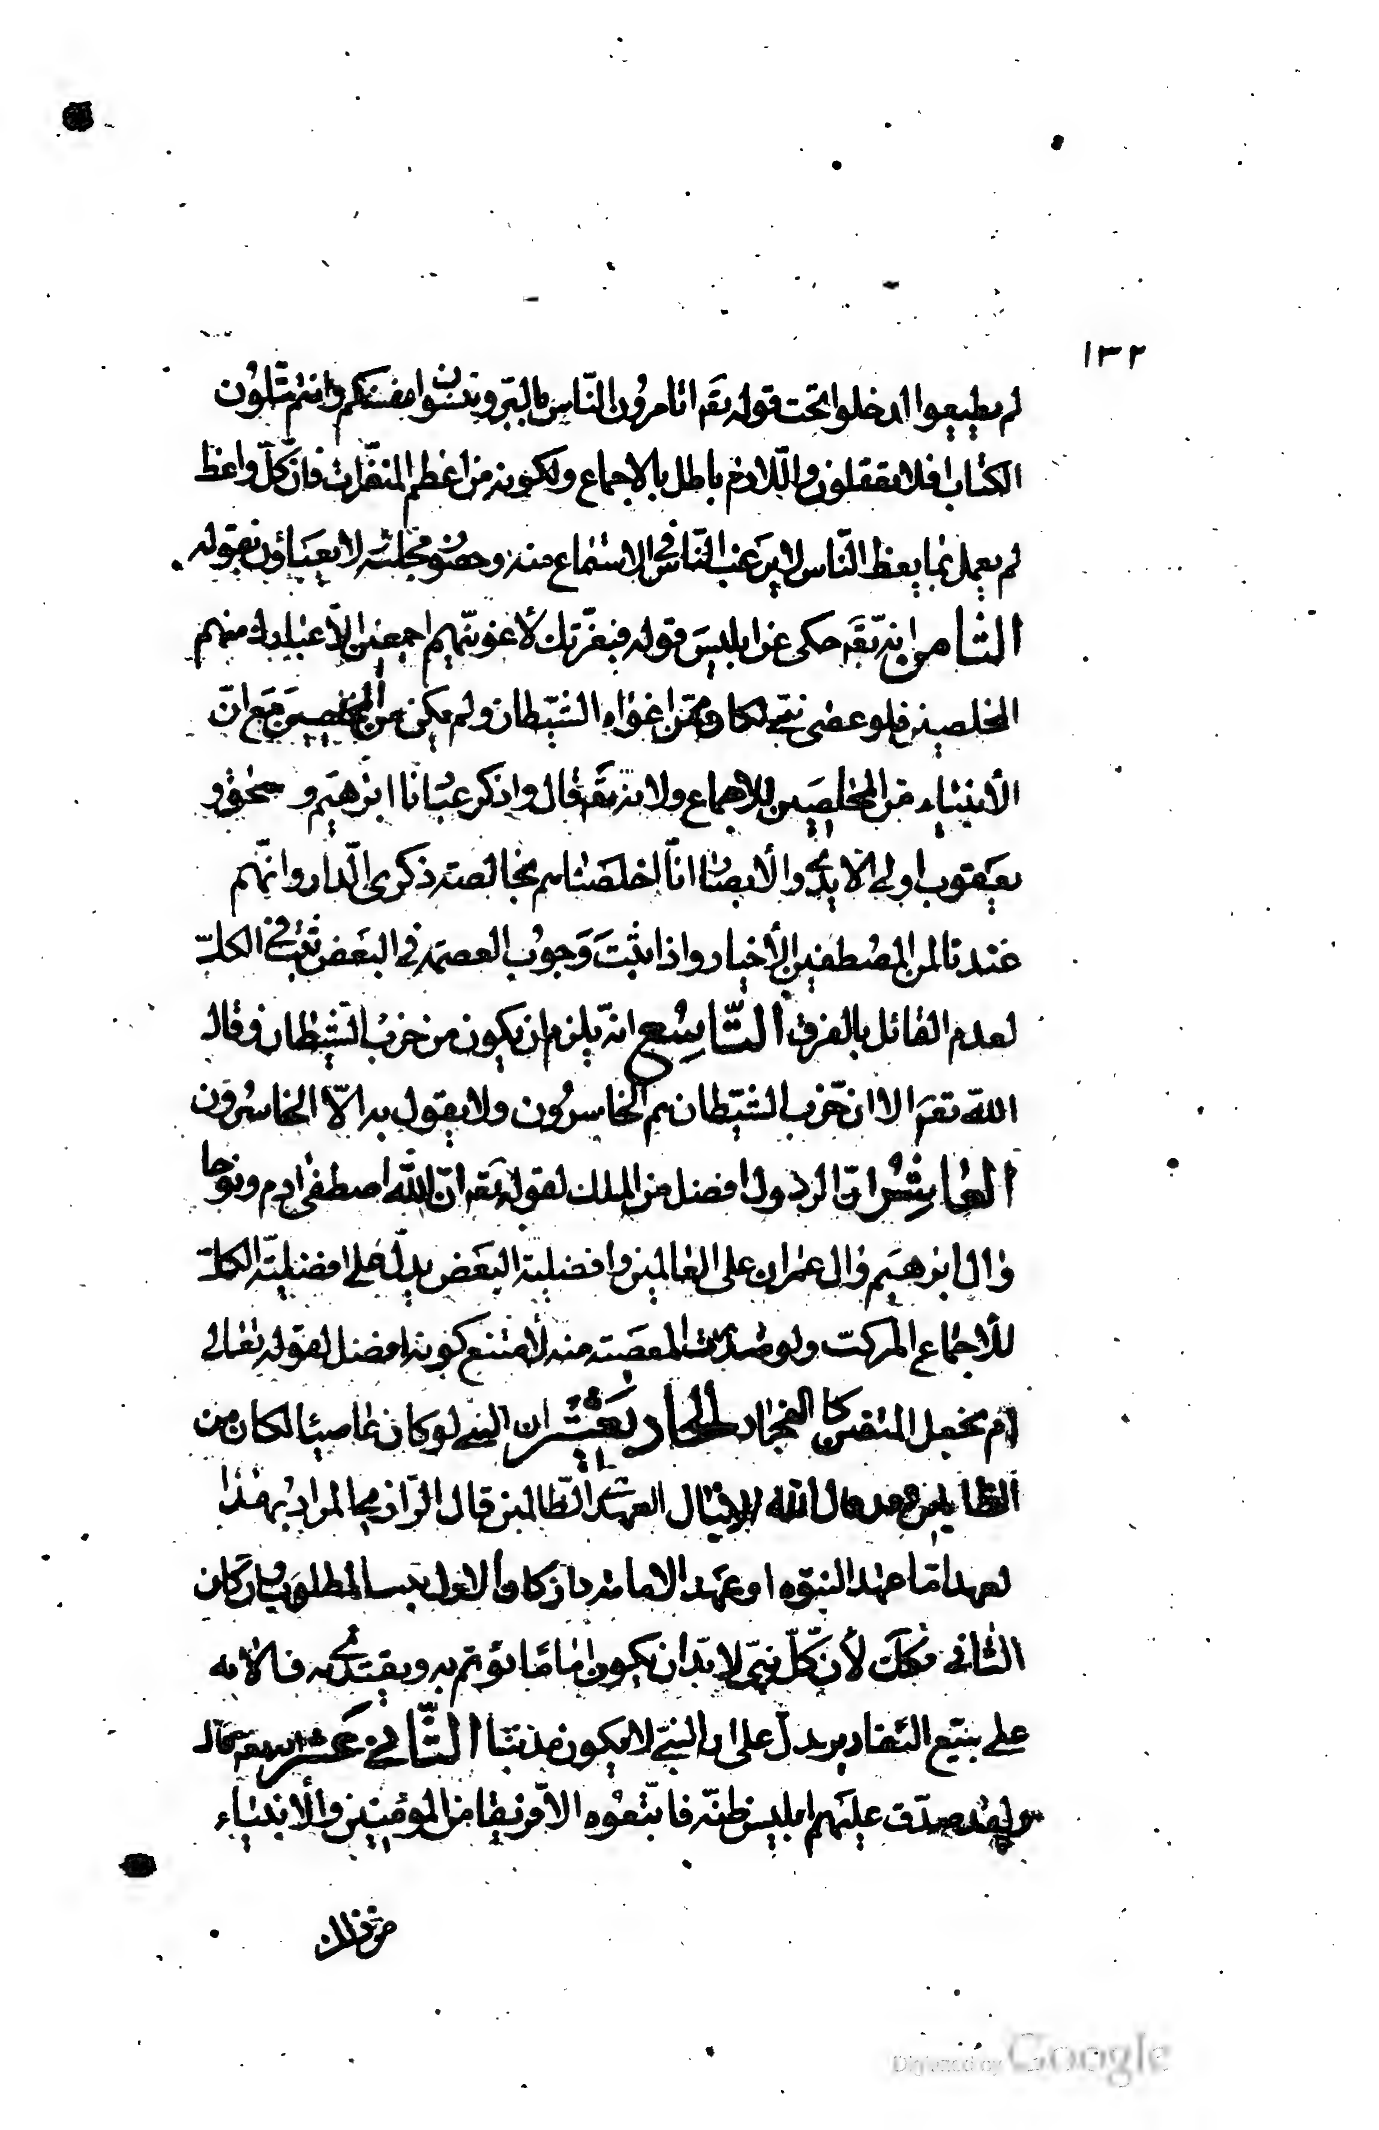 ١٣٢
لم يطيعوا لدخلوا تحت قوله تقه اتامرون الناس بالبر وتنسون انفسكم وانتم تتلون
الكتاب افلا تعقلون واللازم باطل بالاجماع ولكونه من اعظم المنفرات فان كل واعظ
لم يعمل بما يعظ الناس لا يرغب الناس في الاستماع منه وحضور مجلسه لا يعبأون بقوله
الثامن انه تقه حكى عن ابليس قوله فبعزتك لأغوينهم اجمعين الا عبادك منهم
المخلصين فلو عصى نبي لكان ممن اغواه الشيطان ولم يكن من المخلصين مع ان
الأنبياء من المخلصين للاجماع ولانه تقه قال واذكر عبادنا ابرهيم واسحق و
يعقوب اولي الايدي والأبصار انا اخلصناهم بخالصة ذكرى الدار وانهم
عندنا لمن المصطفين الأخيار واذا ثبت وجوب العصمة في البعض ثبت في الكل
لعدم القائل بالفرق التاسع انه يلزم ان يكون من حزب الشيطان وقال
الله تقه الا ان حزب الشيطان هم الخاسرون ولا يقول به الا الخاسرون
العاشر ان الرسول افضل من الملك لقوله تقه ان الله اصطفى ادم ونوحا
وال ابرهيم وال عمران على العالمين وافضلية البعض يدل على افضلية الكل
للاجماع المركب ولو صدرت المعصية منه لامتنع كونه افضل لقوله تعالى
ام نجعل المتقين كالفجار الحاديعشر ان النبي لو كان عاصيا لكان من
الظالمين وقد قال الله لا ينال العهد الظالمين قال الرازي المراد بهذا
لعهد اما عهد النبوة او عهد الامامة فان كان الاول المطلوب وان كان
الثاني فكك لأن كل نبي لا بد ان يكون اماما يؤتم به ويقتدى به فالآية
على جميع التقادير يدل على ان النبي لا يكون مذنبا الثاني عشر انه تقه قال
ولقد صدق عليهم ابليس ظنه فاتبعوه الا فريقا من المؤمنين والأنبياء
من ذلك
Digitized by Google